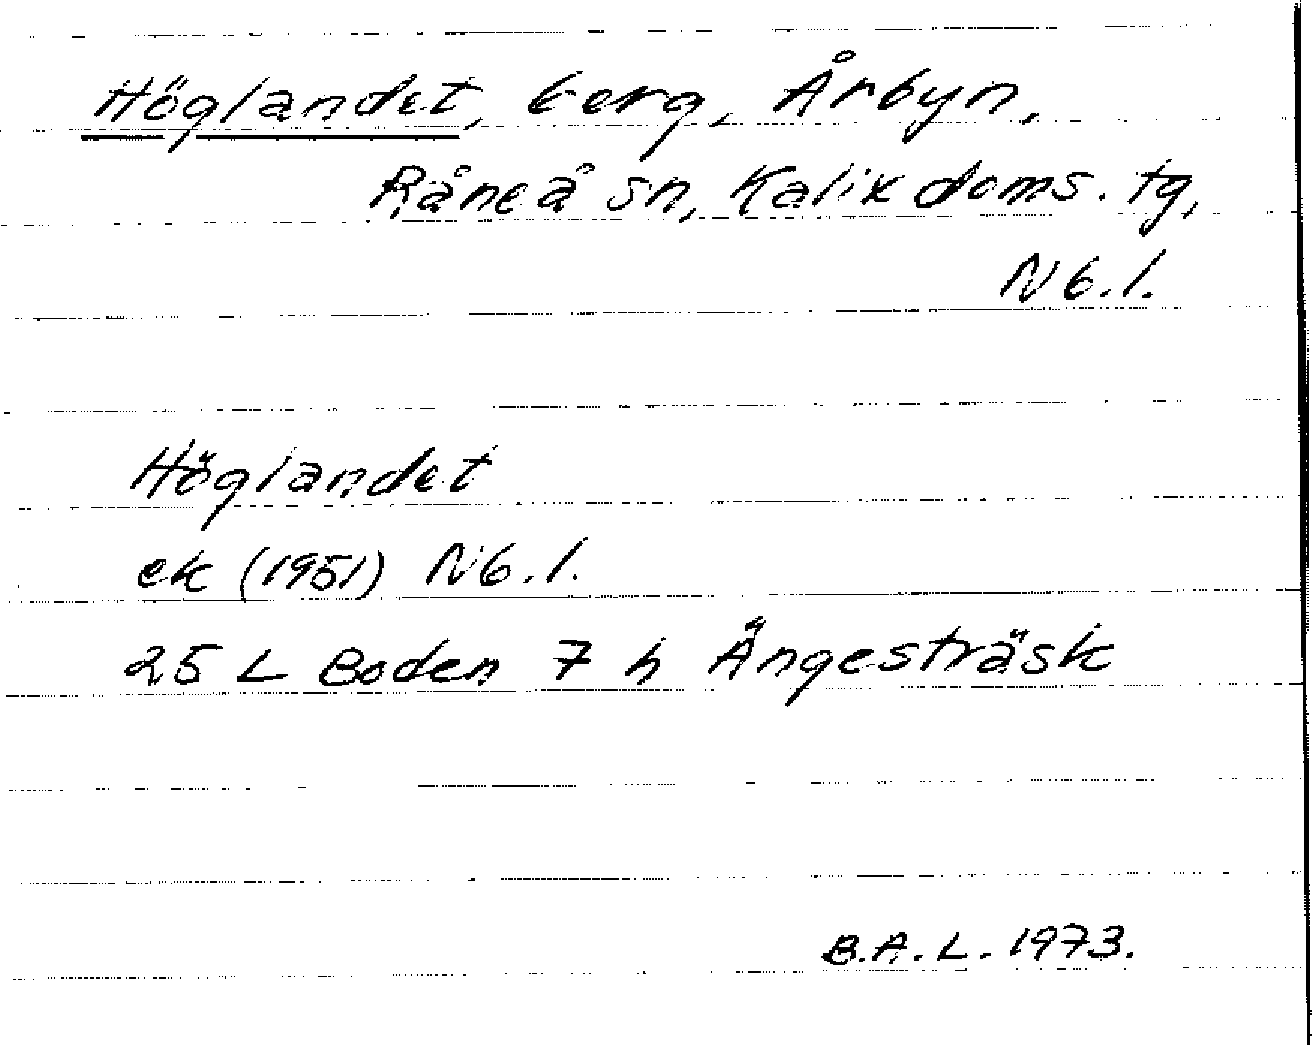 Höglandet, berg, Årbyn,
Råneå sn, Kalix doms. tg,
Nb.l.
Höglandet
ek (1951) Nb.l.
25 L Boden 7 h Ängesträsk
B.A.L. 1973.